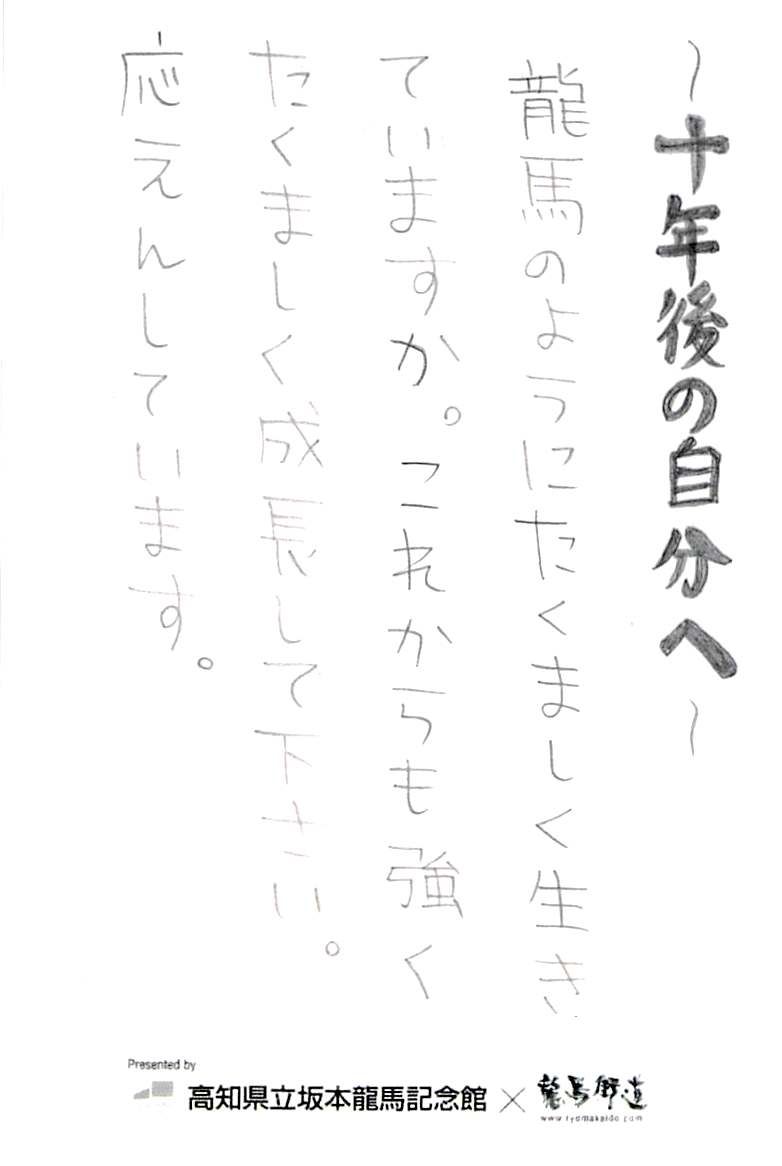 ～十年後の自分へ～
龍馬のようにたくましく生き
ていますか。これからも強く
たくましく成長して下さい。
応えんしています。
Presented by
高知県立坂本龍馬記念館×龍馬街道
www.ryomakaido.com